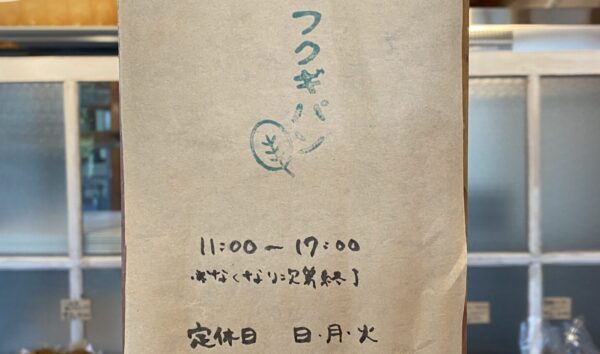 フクギパン
11:00～17:00
※なくなり次第終了
定休日 日・月・火